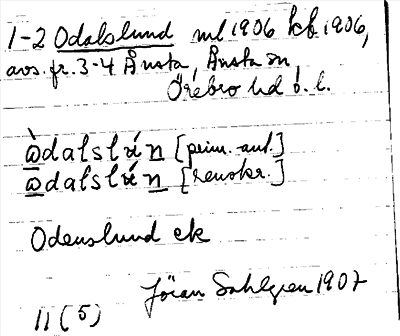 1-2 Odalslund ml 1906 kb. 1906,
avs. fr. 3-4 Ånsta, Ånsta sn,
Örebro hd ö. l.
ὼdalsln [prim.-uppt.]
ωdalsln [renskr.]
Odenslund ek
Jöran Sahlgren 1907
11 (5)